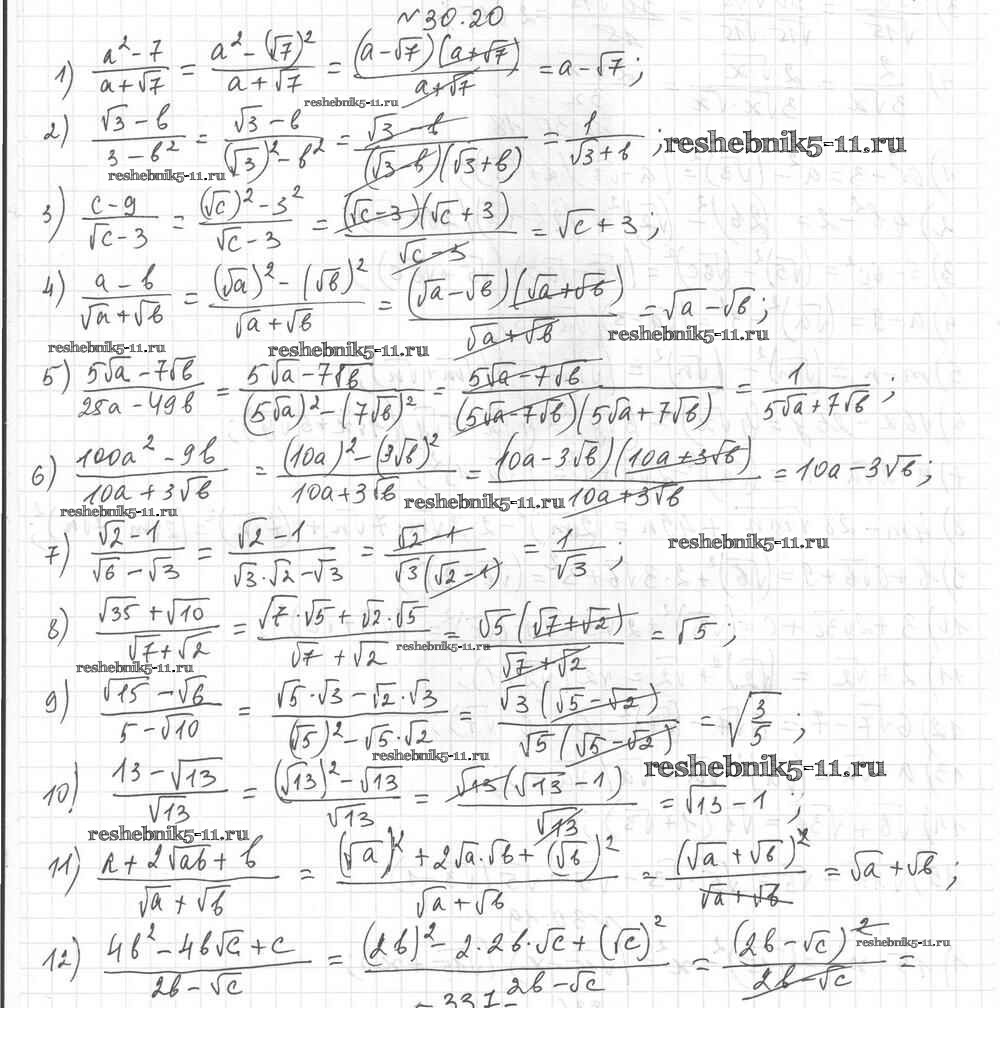 №30.20
1) (a² - 7)/(a + √7) = (a² - (√7)²)/(a + √7) = ((a - √7)(a + √7))/(a + √7) = a - √7;
reshebnik5-11.ru
2) (√3 - b)/(3 - b²) = (√3 - b)/((√3)² - b²) = (√3 - b)/((√3 - b)(√3 + b)) = 1/(√3 + b);
reshebnik5-11.ru
reshebnik5-11.ru
3) (c - 9)/(√c - 3) = ((√c)² - 3²)/(√c - 3) = ((√c - 3)(√c + 3))/(√c - 3) = √c + 3;
4) (a - b)/(√a + √b) = ((√a)² - (√b)²)/(√a + √b) = ((√a - √b)(√a + √b))/(√a + √b) = √a - √b;
reshebnik5-11.ru
reshebnik5-11.ru
reshebnik5-11.ru
5) (5√a - 7√b)/(25a - 49b) = (5√a - 7√b)/((5√a)² - (7√b)²) = (5√a - 7√b)/((5√a - 7√b)(5√a + 7√b)) = 1/(5√a + 7√b);
6) (100a² - 9b)/(10a + 3√b) = ((10a)² - (3√b)²)/(10a + 3√b) = ((10a - 3√b)(10a + 3√b))/(10a + 3√b) = 10a - 3√b;
reshebnik5-11.ru
reshebnik5-11.ru
7) (√2 - 1)/(√6 - √3) = (√2 - 1)/(√3·√2 - √3) = (√2 - 1)/(√3(√2 - 1)) = 1/√3;
reshebnik5-11.ru
8) (√35 + √10)/(√7 + √2) = (√7·√5 + √2·√5)/(√7 + √2) = (√5(√7 + √2))/(√7 + √2) = √5;
reshebnik5-11.ru
reshebnik5-11.ru
9) (√15 - √6)/(5 - √10) = (√5·√3 - √2·√3)/((√5)² - √5·√2) = (√3(√5 - √2))/(√5(√5 - √2)) = √(3/5);
reshebnik5-11.ru
reshebnik5-11.ru
10) (13 - √13)/√13 = ((√13)² - √13)/√13 = (√13(√13 - 1))/√13 = √13 - 1;
reshebnik5-11.ru
11) (a + 2√ab + b)/(√a + √b) = ((√a)² + 2√a·√b + (√b)²)/(√a + √b) = (√a + √b)²/(√a + √b) = √a + √b;
12) (4b² - 4b√c + c)/(2b - √c) = ((2b)² - 2·2b·√c + (√c)²)/(2b - √c) = (2b - √c)²/(2b - √c) =
reshebnik5-11.ru
- 331 -